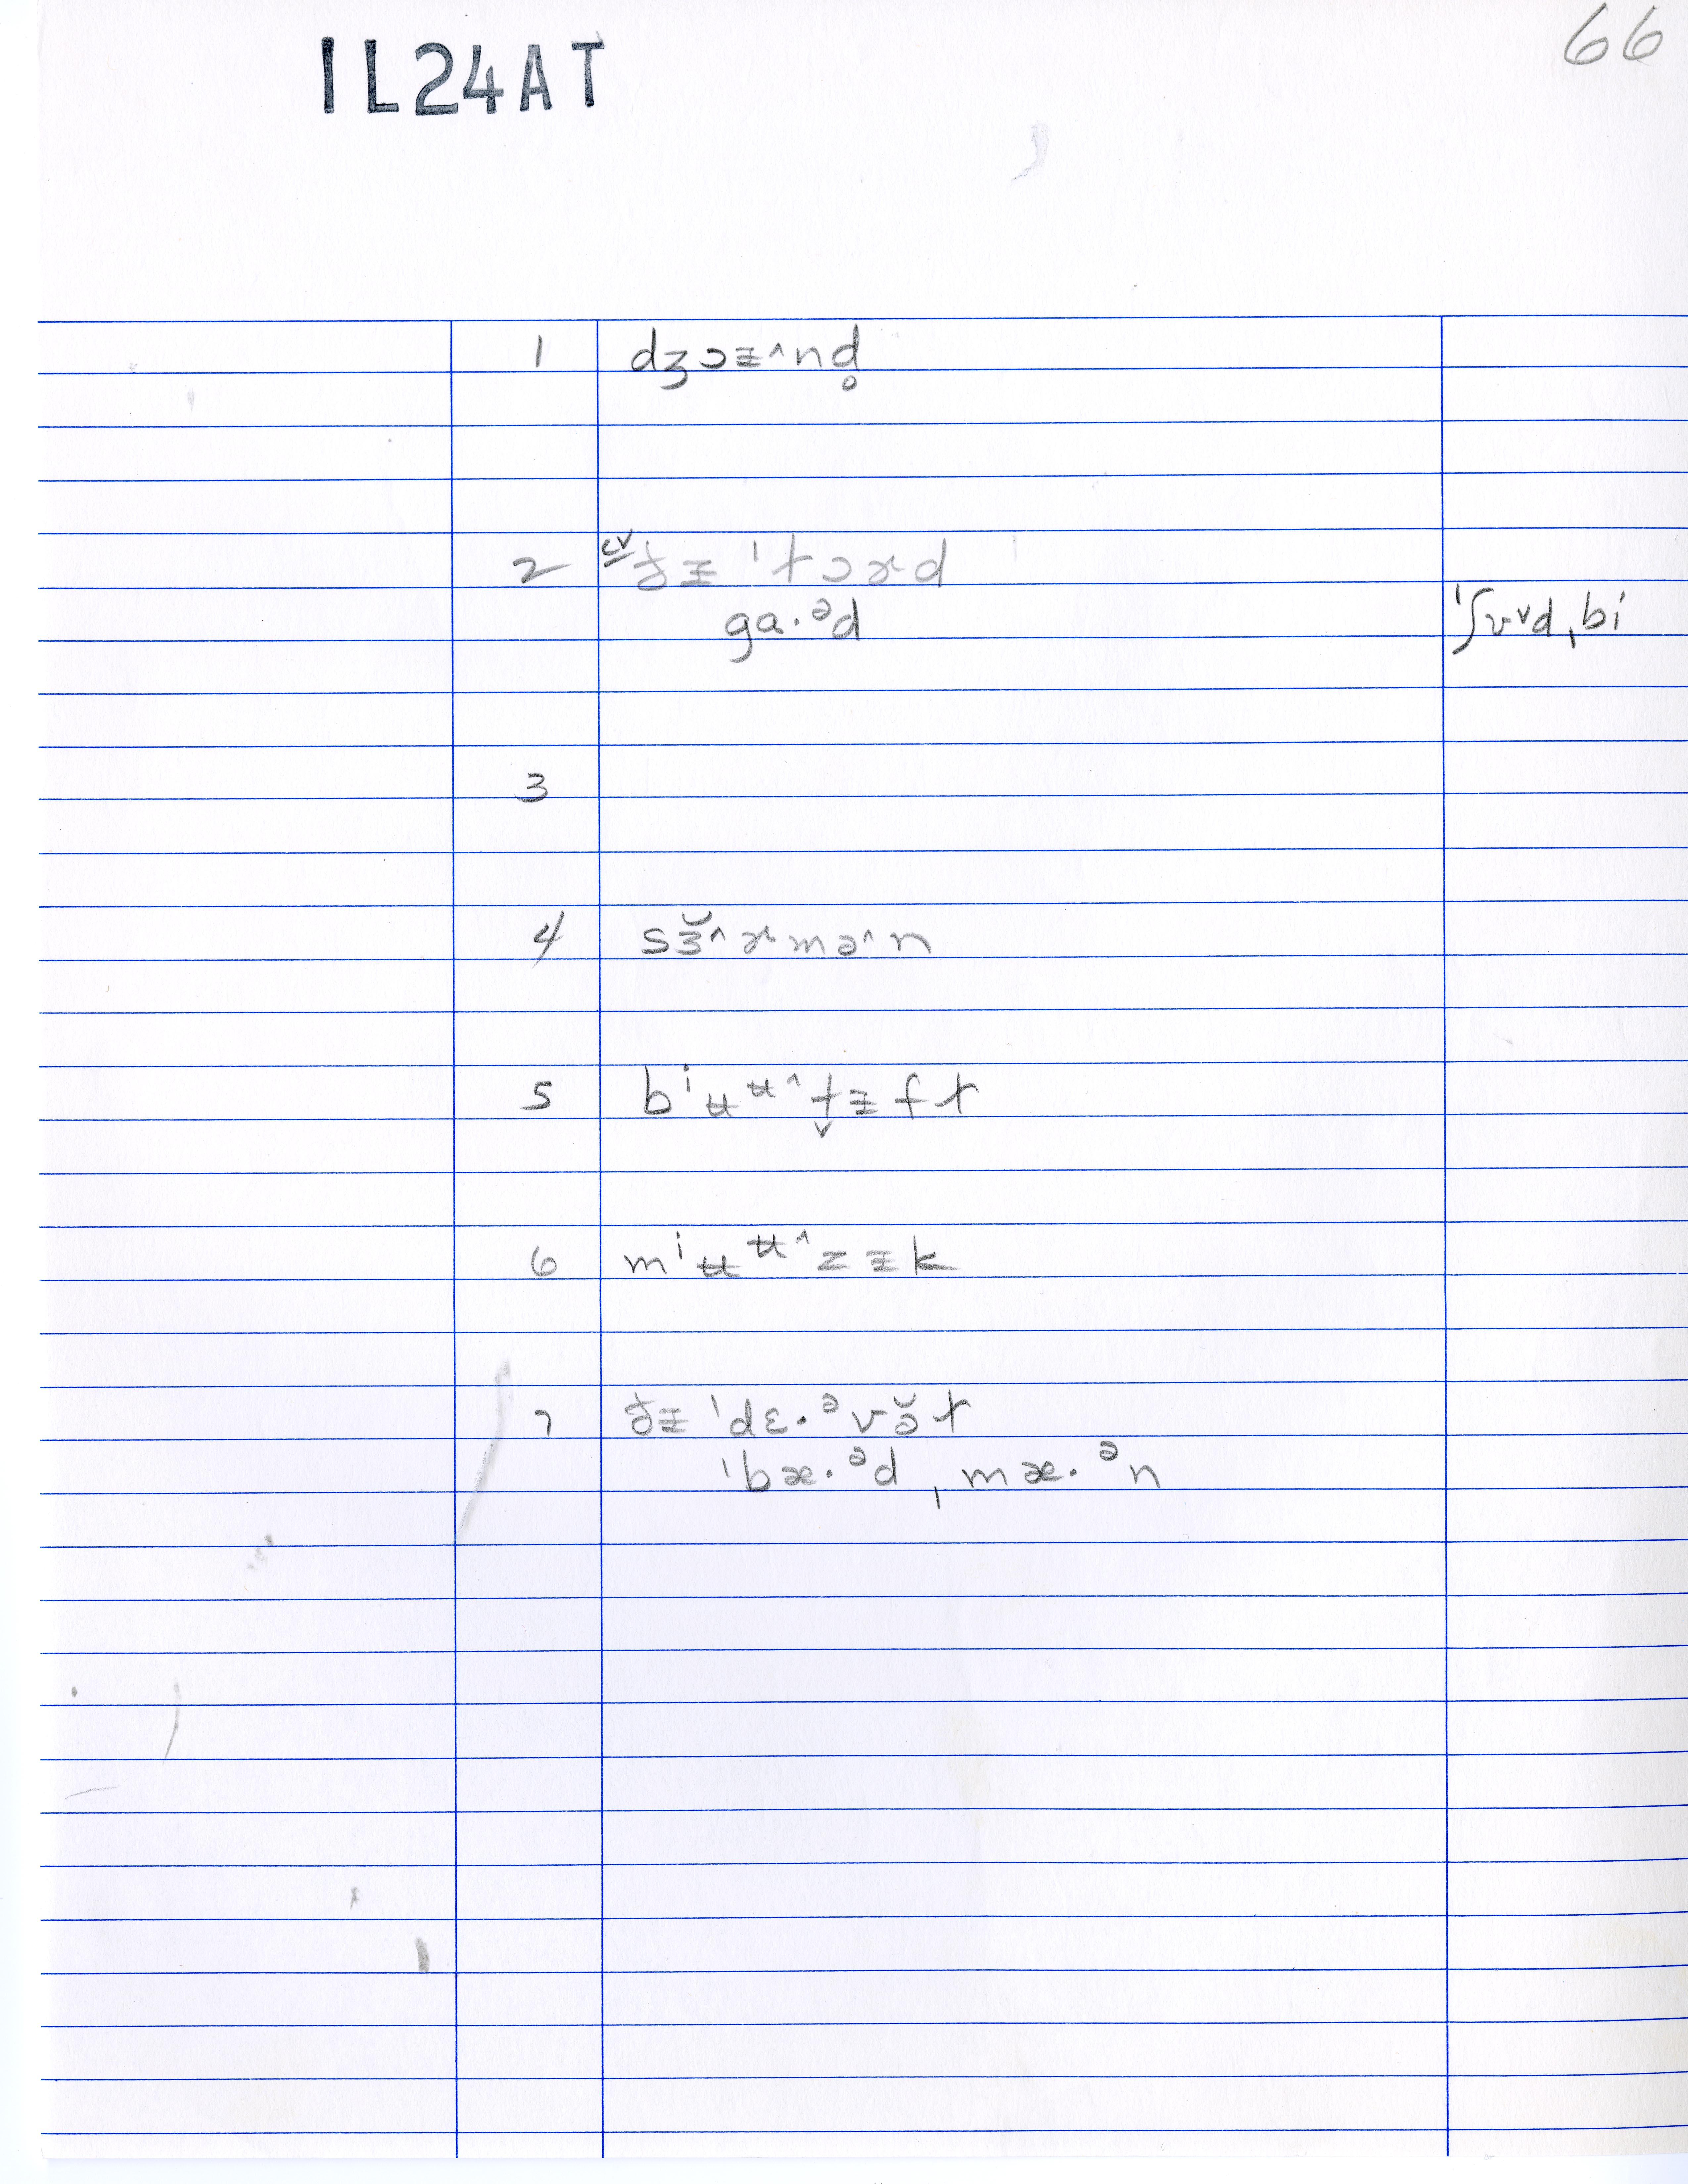 66
IL24AT
1 dʒɔɪ̵˄nd̥
2 cv ðɪ̵ ˈtɔɚd
ga·ᵊd ˈʃʊ˅dˌbi
3
4 sɜ̆˄ɚmə˄n
5 bⁱʉᵿ˄t̬ɪ̵ft
6 mⁱʉᵿ˄zɪ̵k
7 ðɪ̵ ˈdɛ·ᵊvə̆t
ˈbæ·ᵊdˌmæ·ᵊn